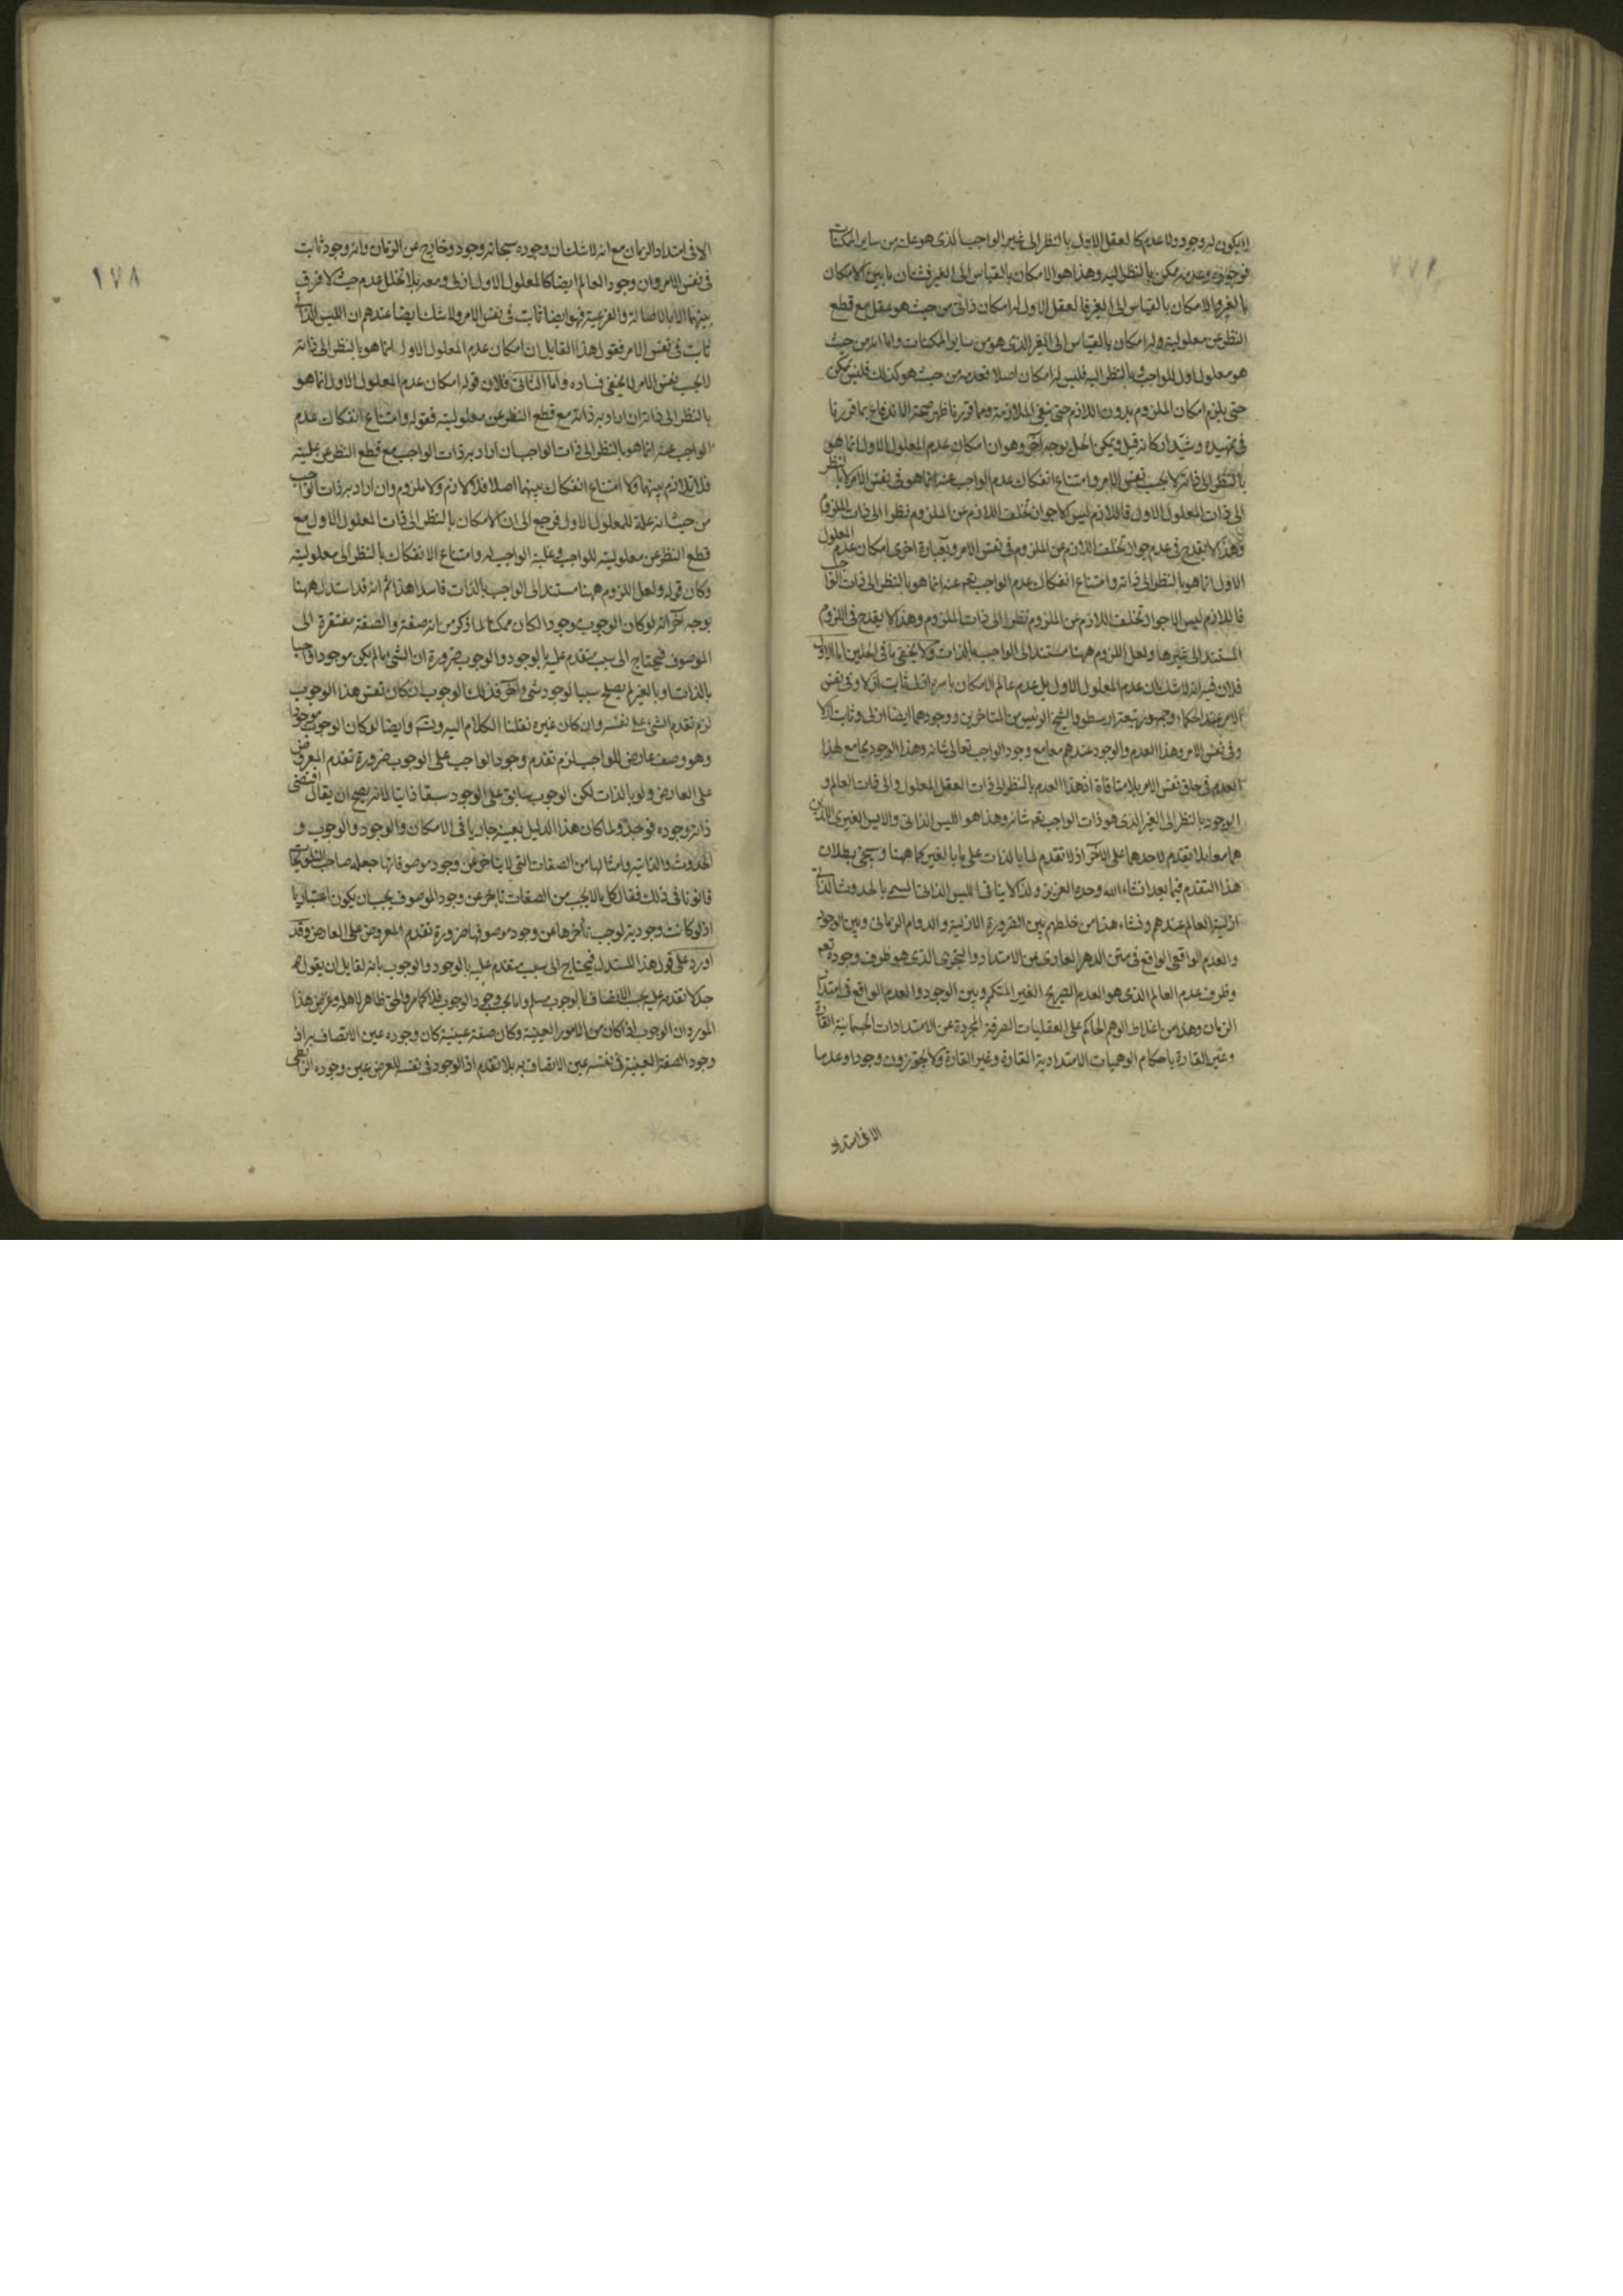 لا يكون له وجود ولا عدم كالعقل الاول بالنظر الى غير الواجب الذى هو علته من ساير الممكنات
فوجوده وعدمه ممكن بالنظر اليه وهذا هو الامكان بالقياس الى الغير فشتان ما بين الامكان
بالغير والامكان بالقياس الى الغير فالعقل الاول له امكان ذاتى من حيث هو عقل مع قطع
النظر عن معلوليته وله امكان بالقياس الى الغير الذى هو من ساير الممكنات واما انه من حيث
هو معلول اول للواجب وبالنظر اليه فليس له امكان اصلا فعدمه من حيث هو كذلك فليس يمكن
حتى يلزم امكان الملزوم بدون اللازم حتى ينفى الملازمة ومما قررنا ظهر صحة الاندفاع بما قررنا
فى تمهيده وشيد اركانه قيل ويمكن الحل بوجه آخر وهو ان امكان عدم المعلول الاول انما هو
بالنظر الى ذاته لا بحسب نفس الامر وامتناع انفكاك عدم الواجب عنه انما هو فى نفس الامر لا بالنظر
الى ذات المعلول الاول فاللازم ليس الا جواز تخلف اللازم عن الملزوم نظرا الى ذات الملزوم
وهذا لا يقدح فى عدم جواز تخلف اللازم عن الملزوم فى نفس الامر وبعبارة اخرى امكان عدم المعلول
الاول انما هو بالنظر الى ذاته وامتناع انفكاك عدم الواجب تعم عنه انما هو بالنظر الى ذات الواجب
فاللازم ليس الا جواز تخلف اللازم عن الملزوم نظرا الى ذات الملزوم وهذا لا يقدح فى اللزوم
المستند الى غيرها ولعل اللزوم ههنا مستند الى الواجب بالذات ولا يخفى ما فى الحلين اما الاول
فلان فيه انه لا شك ان عدم المعلول الاول بل عدم عالم الامكان باسره ازلى ثابت ازلا وفى نفس
الامر عند الحكماء وجمهور تبعة ارسطو والشيخ الرئيس من المتاخرين ووجودهما ايضا ازلى وثابت ازلا
وفى نفس الامر وهذا العدم والوجود عندهم معا مع وجود الواجب تعالى شانه وهذا الوجود يجامع لهذا
العدم فى حاق نفس الامر بلا منافاة اذ هذا العدم بالنظر الى ذات العقل المعلول والى ذات العالم و
الوجود بالنظر الى الغير الذى هو ذات الواجب تعم شانه وهذا هو الليس الذاتى والايس الغيرى اللذين
هما معا بلا تقدم لاحدهما على الآخر اذ لا تقدم لما بالذات على ما بالغير كما ههنا وسيجئ بطلان
هذا التقدم فيما بعد انشاء الله وحده العزيز ولذا لا ينافى الليس الذاتى المسمى بالحدوث الذاتى
ازلية العالم عندهم ومنشاء هذا من خلطهم بين الضرورة الازلية والدوام الزمانى وبين الوجود
والعدم الواقعى الواقع فى متن الدهر العارى عن الامتداد والتجزى الذى هو ظرف وجوده تعم
وظرف عدم العالم الذى هو العدم الصريح الغير المتكمم وبين الوجود والعدم الواقع فى امتداد
الزمان وهذا من اغلاط الوهم الحاكم على العقليات الصرفة المجردة عن الامتدادات الجسمانية القارة
وغير القارة باحكام الوهميات الامتدادية القارة وغير القارة ولا يجوزون وجودا وعدما
الا فى امتداد
١٧٨
الا فى امتداد الزمان مع انه لا شك ان وجوده سبحانه وجود وخارج عن الزمان وانه وجود ثابت
فى نفس الامر وان وجود العالم ايضا كالمعلول الاول ازلى ومعه بلا تخلل عدم حيث لا فرق
بينهما الا بالاصالة والفرعية فهو ايضا ثابت فى نفس الامر ولا شك ايضا عندهم ان الليس الذاتى
ثابت فى نفس الامر فقول هذا القايل ان امكان عدم المعلول الاول انما هو بالنظر الى ذاته
لا بحسب نفس الامر لا يخفى فساده واما الثانى فلان قوله امكان عدم المعلول الاول انما هو
بالنظر الى ذاته ان اراد به ذاته مع قطع النظر عن معلوليته فقوله وامتناع انفكاك عدم
الواجب عنه انما هو بالنظر الى ذات الواجب ان اراد به ذات الواجب مع قطع النظر عن عليته
فلا تلازم بينهما ولا امتناع انفكاك بينهما اصلا فلا لازم ولا ملزوم وان اراد به ذات الواجب
من حيث انه علة للمعلول الاول فرجع الى ان الامكان بالنظر الى ذات المعلول الاول مع
قطع النظر عن معلوليته للواجب وعلية الواجب له وامتناع الانفكاك بالنظر الى معلوليته
وكان قوله ولعل اللزوم ههنا مستند الى الواجب بالذات فاسدا هذا ثم انه قد استدل ههنا
بوجه آخر انه لو كان الوجوب موجودا لكان ممكنا لما ذكر من انه صفة والصفة مفتقرة الى
الموصوف فيحتاج الى سبب متقدم عليه بالوجود والوجوب ضرورة ان الشئ ما لم يكن موجودا واجبا
بالذات او بالغير لم يصلح سببا لوجود شئ آخر فذلك الوجوب ان كان نفس هذا الوجوب
لزم تقدم الشئ على نفسه وان كان غيره نقلنا الكلام اليه وتسلسل وايضا لو كان الوجوب موجودا
وهو وصف عارض للواجب لزم تقدم وجود الواجب على الوجوب ضرورة تقدم المعروض
على العارض ولو بالذات لكن الوجوب سابق على الوجود سبقا ذاتيا لانه يصح ان يقال اقتضى
ذاته وجوده فوجد ولما كان هذا الدليل بعينه جاريا فى الامكان والوجود والوجوب و
الحدوث والذاتية وامثالها من الصفات التى لا يتاخر عن وجود موصوفاتها جعله صاحب التلويحات
قانونا فى ذلك فقال كل ما لا يجب من الصفات تاخره عن وجود الموصوف يجب ان يكون اعتباريا
اذ لو كانت وجودية لوجب تأخرها عن وجود موصوفها ضرورة تقدم المعروض على العارض وقد
اورد على قول هذا المستدل فيحتاج الى سبب متقدم عليه بالوجود والوجوب بانه لقايل ان يقول
تقدمه عليه بحسب الاتصاف بالوجوب مسلم واما بحسب وجود الوجوب فلا كما مر والحق ظاهر لاهله وغرض هذا
المورد ان الوجوب اذا كان من الامور العينية وكان صفة عينية كان وجوده عين الاتصاف به اذ
وجود الصفة العينية فى نفسه عين الاتصاف به بلا تقدم اذ الوجود فى نفسه للعرض عين وجوده الرابطى